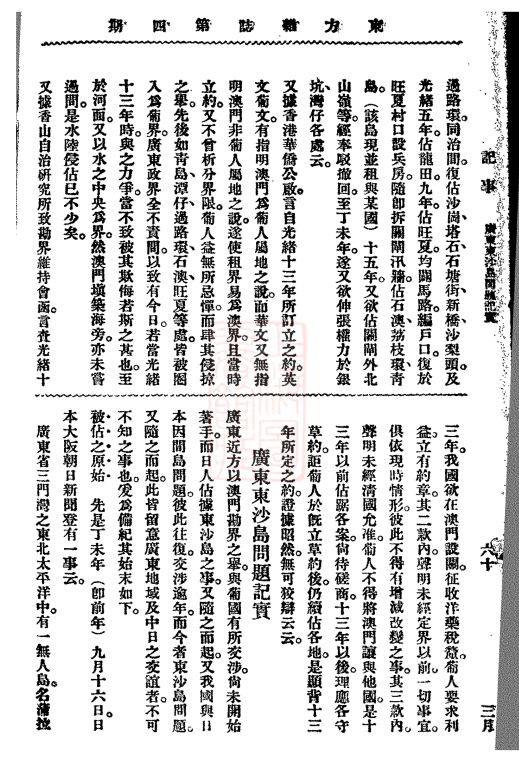 東方雜誌第四期
記事　廣東東沙島問題記實
六十
三月
過路環同治間復佔沙崗塔石石塘街新橋沙梨頭及
光緒五年佔龍田九年佔旺夏均闢馬路編戶口復於
旺夏村口設兵房隨卽拆關閘汛牆佔石澳荔枝環青
島。（該島現並租與某國）十五年又欲佔關閘外北
山嶺等經奉駁撤回至丁未年遂又欲伸張權力於銀
坑灣仔各處云。
又據香港華僑公啟言自光緒十三年所訂立之約英
文葡文有指明澳門爲葡人屬地之說而華文又無指
明澳門非葡人屬地之說遂使租界易爲澳界且當時
立約又不曾析分界限葡人益無所忌憚而肆其侵掠
之舉先後如青島潭仔過路環石澳旺夏等處皆被圈
入爲葡界廣東政界全不責問以致有今日若當光緒
十三年時與之力爭當不致被其欺侮若斯之甚也至
於河面又以水之中央爲界然澳門塡築海旁亦未嘗
過問是水陸侵佔已不少矣。
又據香山自治硏究所致勘界維持會函言查光緒十
三年我國欲在澳門設關征收洋藥稅釐葡人要求利
益立有約章其二款內聲明未經定界以前一切事宜
俱依現時情形彼此不得有增減改變之事其三款內
聲明未經淸國允准葡人不得將澳門讓與他國是十
三年以前佔踞各案尙待磋商十三年以後理應各守
草約詎葡人於旣立草約後仍續佔各地是顯背十三
年所定之約證據昭然無可狡辯云云。
廣東東沙島問題記實
廣東近方以澳門勘界之舉與葡國有所交涉尙未開始
著手而日人佔據東沙島之事又隨之而起又我國與日
本因間島問題彼此往復交涉逾年而今者東沙島問題
又隨之而起此皆留意廣東地域及中日之交誼者不可
不知之事也爰爲備紀其始末如下。
被佔之原始　先是丁未年（卽前年）九月十六日日
本大阪朝日新聞登有一事云。
廣東省三門灣之東北太平洋中有一無人島名蒲拉